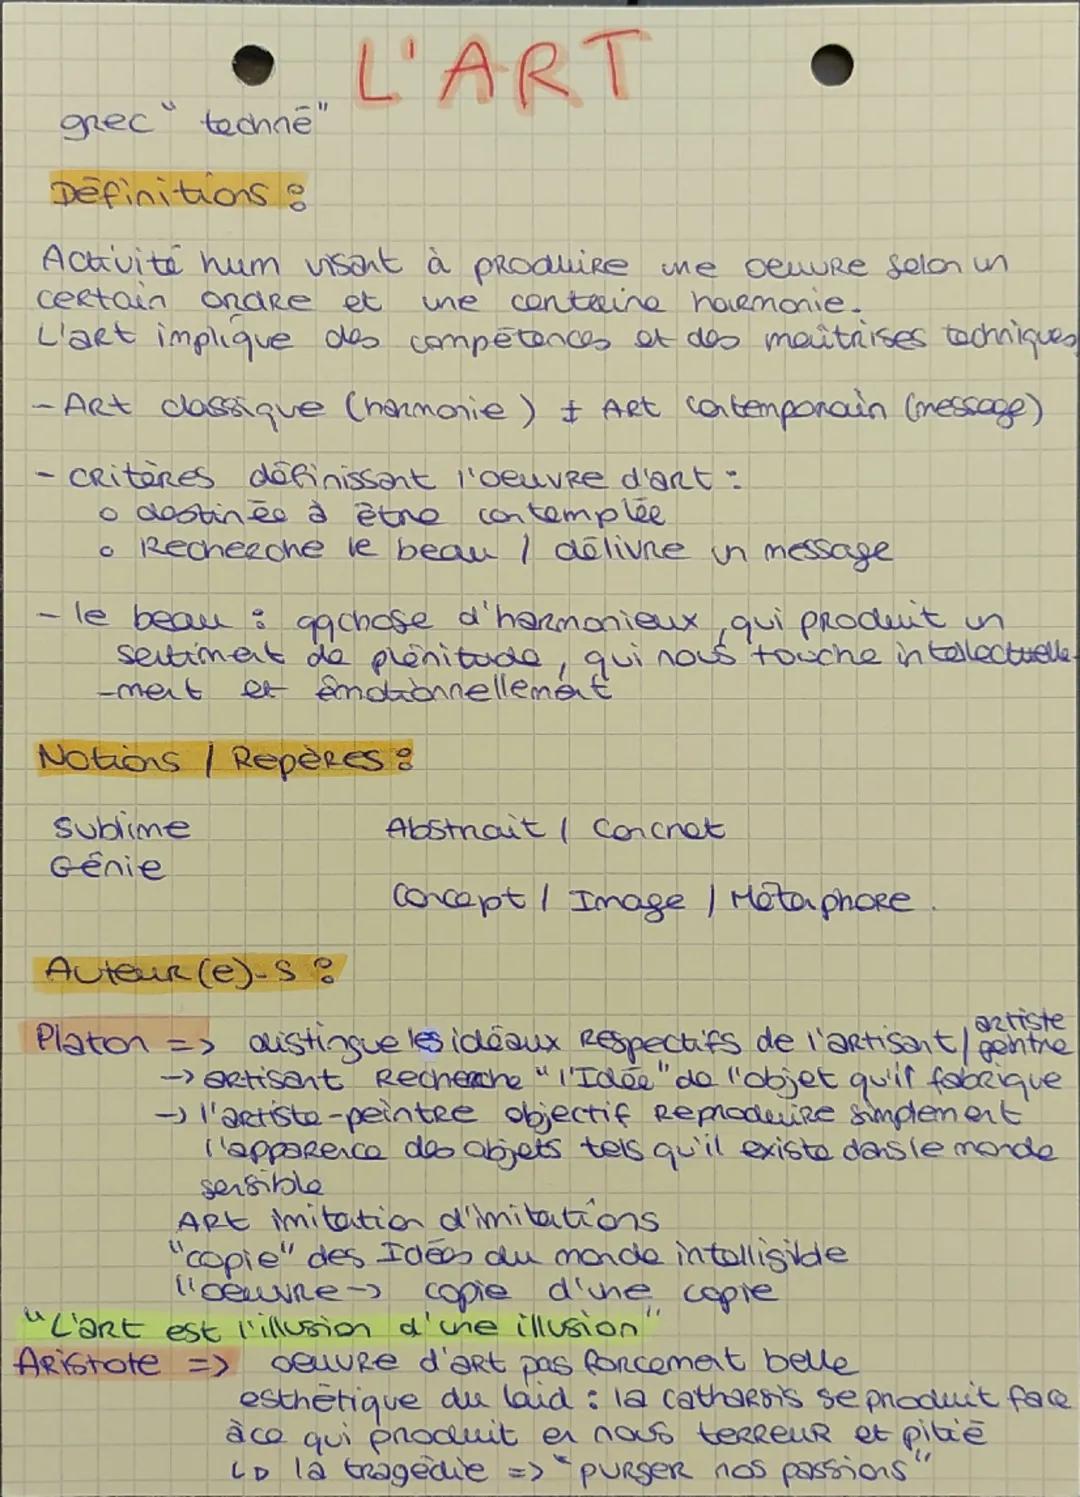 L'ART
grec " technē"
Définitions :
Activité hum visant à produire une oeuvre selon un
certain ordre et une certaine harmonie.
L'art implique des compétences et des maîtrises techniques
- Art classique (harmonie) ≠ Art contemporain (message)
- critères définissant l'oeuvre d'art :
o destinée à être contemplée
o Recherche le beau / délivre un message
- le beau : qqchose d'harmonieux, qui produit un
sentiment de plénitude, qui nous touche intellectuelle-
-ment et émotionnellement
Notions / Repères :
Sublime Abstrait / Concret
Génie
Concept / Image / Métaphore.
Auteur(e)-s :
Platon => distingue les idéaux respectifs de l'artisant / artiste peintre
-> artisant Recherche "l'Idée" de l'objet qu'il fabrique
-> l'artiste-peintre objectif Reproduire simplement
l'apparence des objets tels qu'il existe dans le monde
sensible
Art imitation d'imitations
"copie" des Idées du monde intelligible
l'oeuvre -> copie d'une copie
"L'art est l'illusion d'une illusion"
Aristote => oeuvre d'art pas forcement belle
esthétique du laid : la catharsis se produit face
àce qui produit en nous terreur et pitié
↳ la tragédie => "purger nos passions"